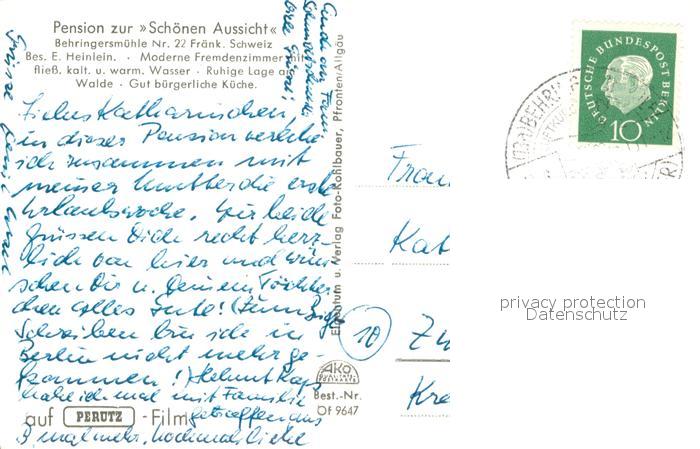 Pension zur »Schönen Aussicht«
Behringersmühle Nr. 22 Fränk. Schweiz
Bes. E. Heinlein. · Moderne Fremdenzimmer mit
fließ. kalt. u. warm. Wasser · Ruhige Lage am
Walde · Gut bürgerliche Küche.
Liebes Katharinchen,
in dieser Pension verlebe
ich zusammen mit
meiner Mutter die erste
Urlaubswoche. Wir beide
grüssen Dich recht herz-
lich von hier und wün-
schen Dir u. Deinem Töchter-
chen alles Gute! (Zum
Schreiben bin ich in
Berlin nicht mehr ge-
kommen!) Helmut
habe ich mal mit Familie
getroffen
mal mehr. Nochmals liebe
Grüsse
auf PERUTZ -Film
Eigentum u. Verlag Foto-Kohlbauer, Pfronten/Allgäu
AKO
Best.-Nr.
Of 9647
Frau
Kat
10
Zw
Kre
DEUTSCHE BUNDESPOST BERLIN
10
privacy protection
Datenschutz